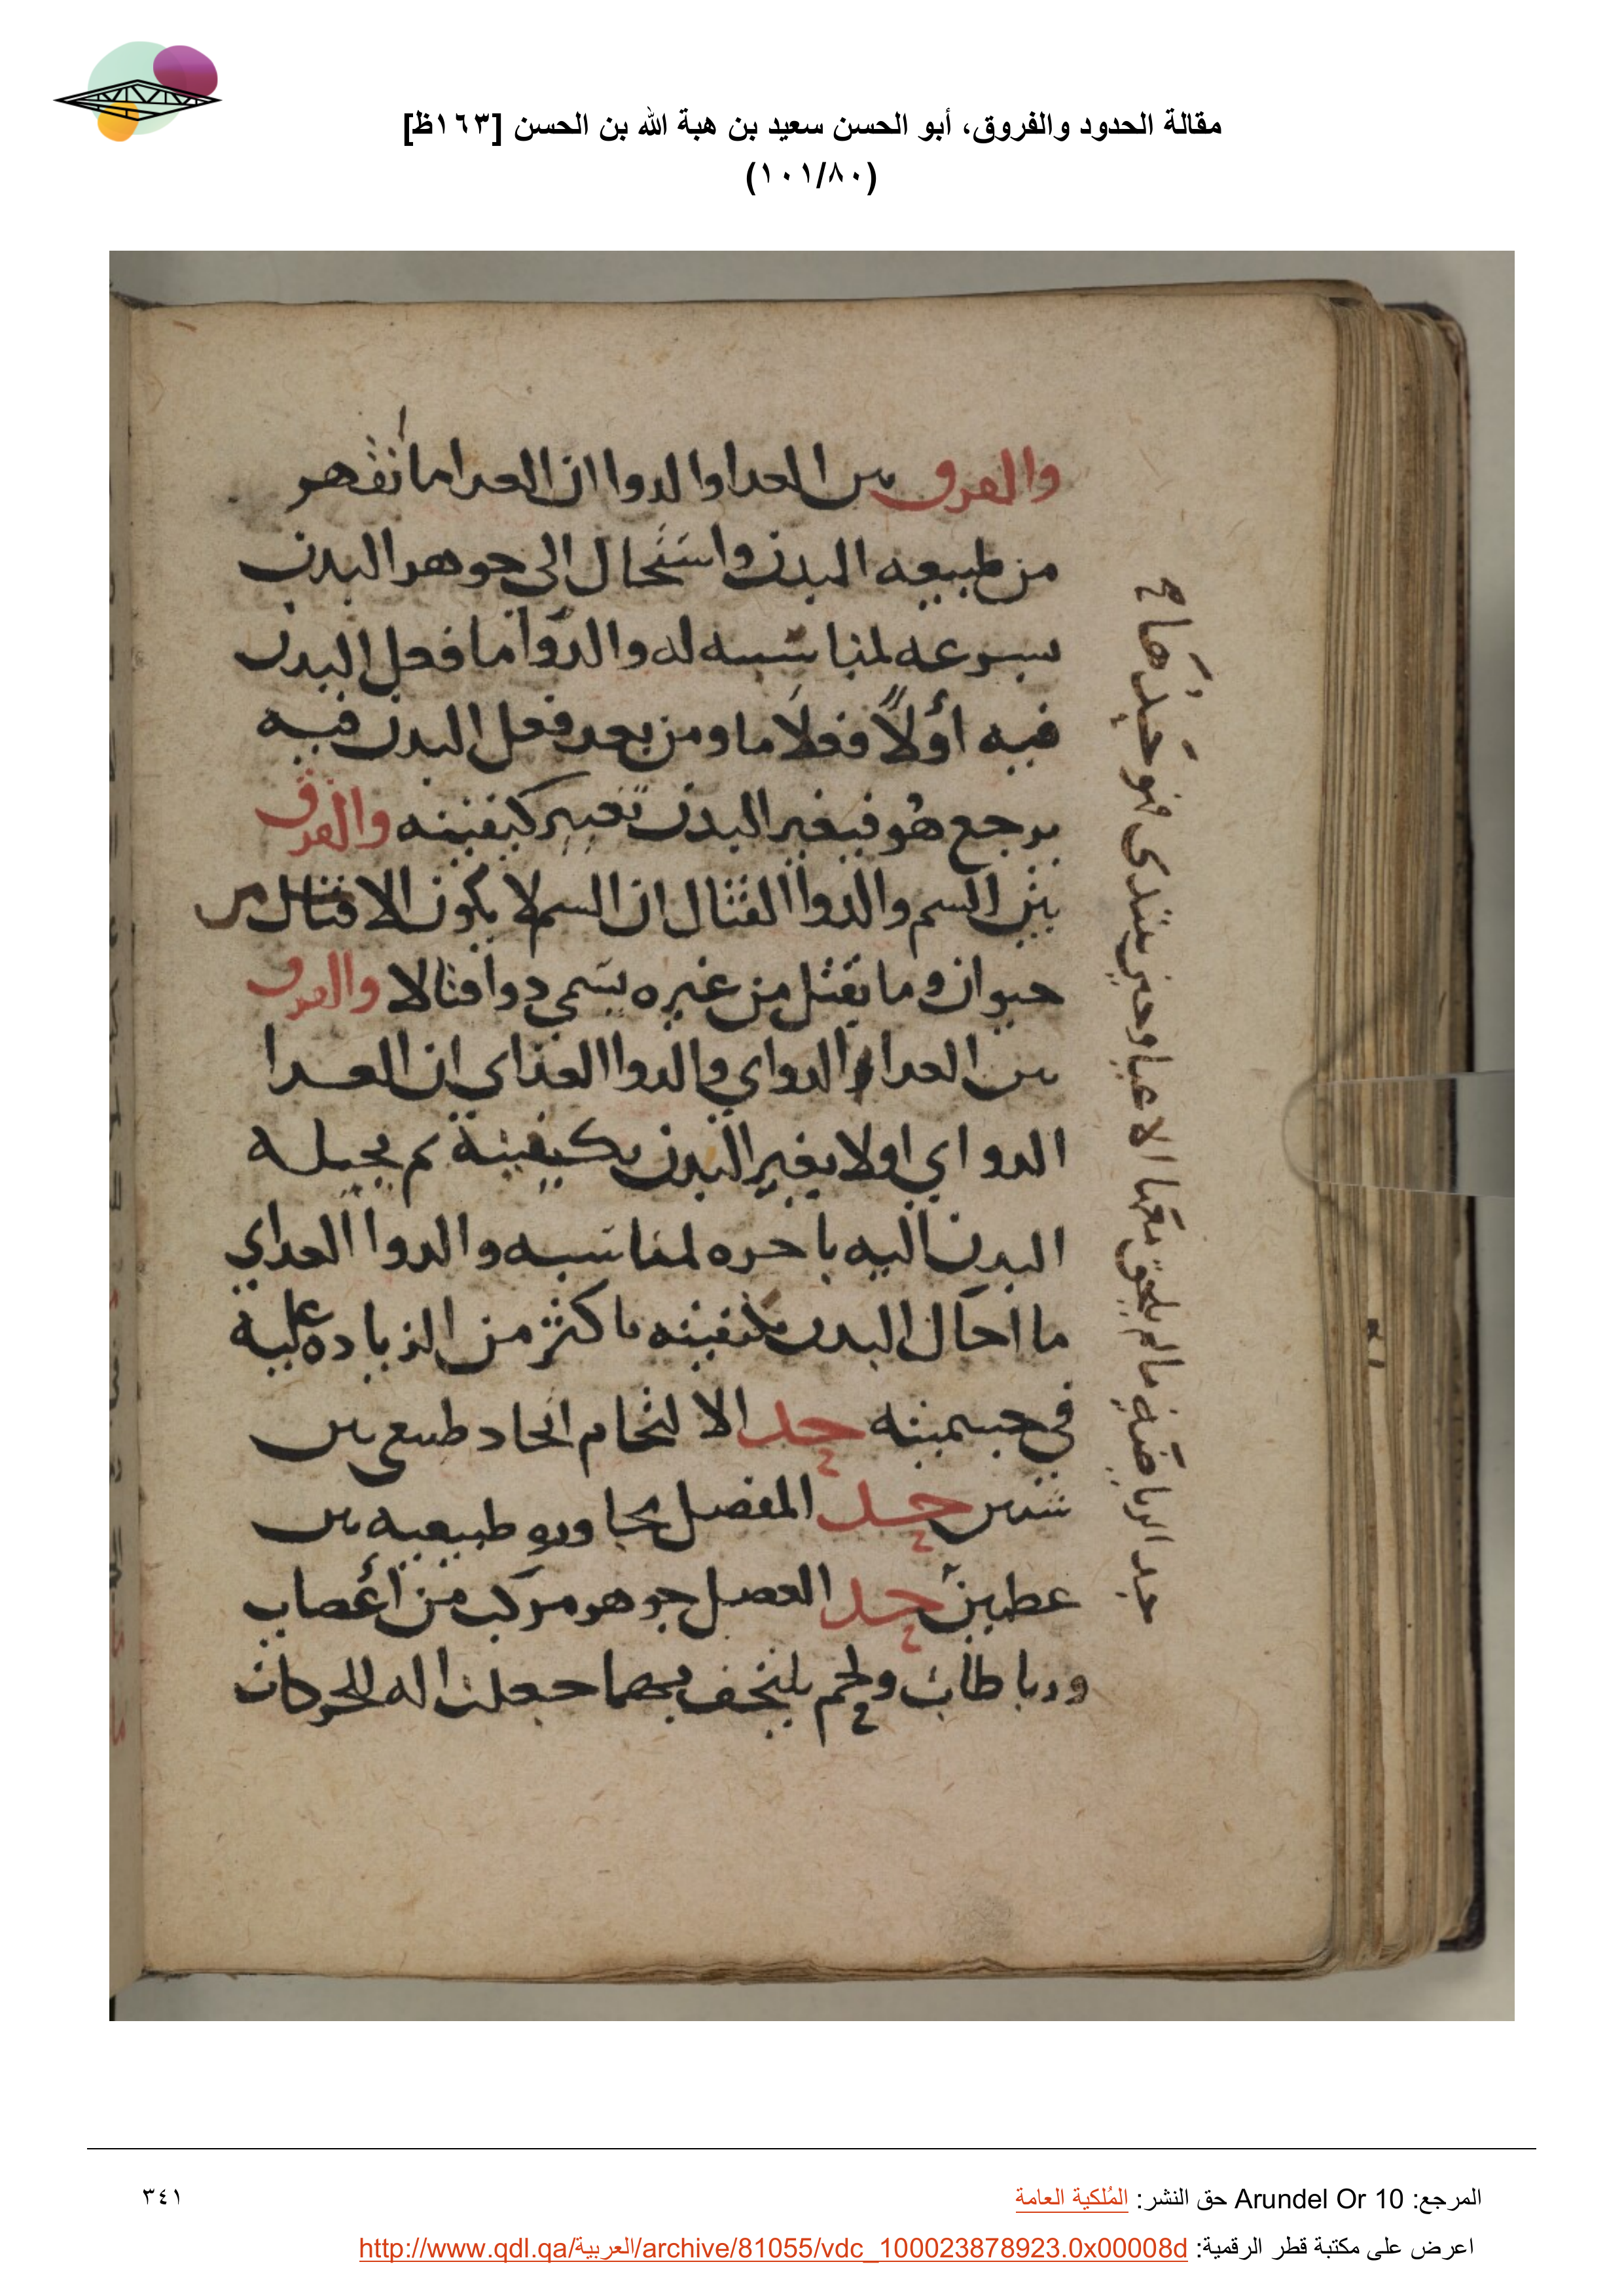 مقالة الحدود والفروق، أبو الحسن سعيد بن هبة الله بن الحسن [١٦٣ظ]
(١٠١/٨٠)
والفرق بين الغدا والدوا ان الغدا ما انقهر
من طبيعه البدن واستحال الى جوهر البدن
بسرعه لمناسبه له والدوا ما فعل البدن
فيه أولاً فعلاً ما ومن بعد فعل البدن فيه
يرجع هو فيغير البدن تغيير كيفيته والفرق
بين السم والدوا القتال ان السم لا يكون الا قتال من
حيوان وما يقتل من غيره يسمى دوا قتالا والفرق
بين الغدا الدواي والدوا الغذاي ان الغدا
الدواي اولا يغير البدن بكيفيته ثم يحيله
البدن اليه باخره لمناسبه والدوا الغداي
ما احال البدن بكيفيته باكثر من الزياده عليه
في جسميته حد الالتحام اتحاد طبيعي بين
شيين حد المفصل مجاوره طبيعيه بين
عظمين حد العضل جوهر مركب من أعصاب
ورباطات ولحم يلتحف بهما جعلت اله للحركات
حد الرياضه ما لم يلحق معها الاعيا وحين يبتدى فهو حد
المرجع: Arundel Or 10 حق النشر: المُلكية العامة
٣٤١
اعرض على مكتبة قطر الرقمية: http://www.qdl.qa/العربية/archive/81055/vdc_100023878923.0x00008d